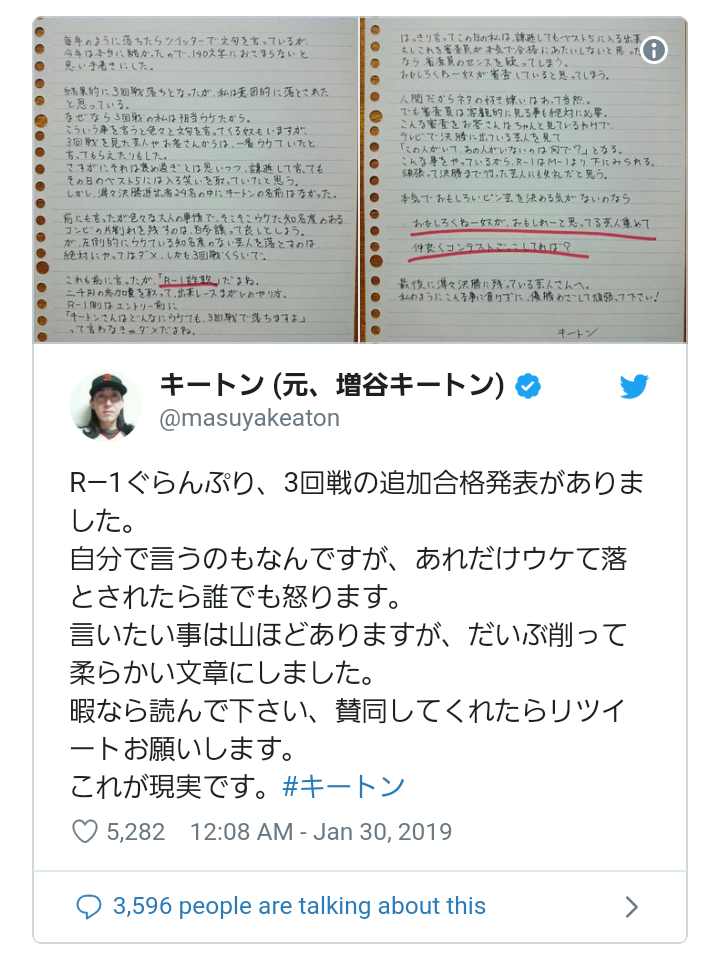 毎年のように落ちたらツイッターで文句を言っているが、
今年は本当に酷かったので、140文字におさまらないと
思い手書きにした。
結果的に3回戦落ちとなったが、私は意図的に落とされた
と思っている。
なぜなら3回戦の私は相当ウケたから。
こういう事を言うと色々と文句を言ってくる奴もいますが、
3回戦を見た芸人やお客さんからは、一番ウケていたと
言ってもらえたりもした。
さすがにそれは褒め過ぎとは思いつつ、謙遜して言っても
その日のベスト5には入る笑いを取っていたと思う。
しかし、準々決勝進出者の中にキートンの名前はなかった。
前にも言ったが色々な大人の事情で、そこそこウケた知名度のある
コンビの片割れを残すのは、百歩譲って良しとしよう
が、圧倒的にウケている知名度のない芸人を落とすのは、
絶対にやってはダメ、しかも3回戦くらいで。
これも前に言ったが「R-1詐欺」だよね。
二千円の参加費を取って、出来レースまがいのやり方。
R-1側はエントリー前に
「キートンさんはどんなにウケても、3回戦で落ちますよ」
って言わなきゃダメだよね。
はっきり言ってこの日の私は、謙遜してもベスト5に入る出来
もしこれを審査員が本気で合格にあたいしないと思った
なら、審査員のセンスを疑ってしまう。
おもしろくねー奴が審査していると思ってしまう。
人間だからネタの好き嫌いはあって当然。
でも審査員は客観的に見る事も絶対に必要。
こんな審査をお客さんはちゃんと見ているわけで、
テレビで決勝に出ている芸人を見て
「この人がいて、あの人がいないのは何で？」となる。
こんな事をやっているから、R-1はM-1より下にみられる。
頑張って決勝まで行った芸人にも失礼だと思う。
本気でおもしろいピン芸を決める気がないのなら
おもしろくねー奴が、おもしれーと思ってる芸人集めて
仲良くコンテストごっこしてれば？
最後に準々決勝に残っている芸人さんへ。
私のようにこんな事に負けずに、優勝めざして頑張って下さい！
キートン
キートン (元、増谷キートン)
@masuyakeaton
R−1ぐらんぷり、3回戦の追加合格発表がありま
した。
自分で言うのもなんですが、あれだけウケて落
とされたら誰でも怒ります。
言いたい事は山ほどありますが、だいぶ削って
柔らかい文章にしました。
暇なら読んで下さい、賛同してくれたらリツイ
ートお願いします。
これが現実です。#キートン
5,282 12:08 AM - Jan 30, 2019
3,596 people are talking about this